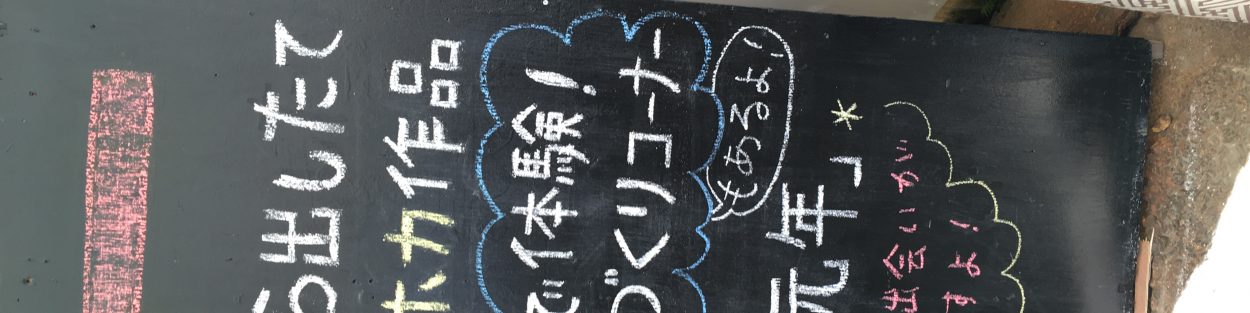 ら出したて
ホカ作品
で体験!
づくりコーナー
もあるよ!
元年」*
出会いが
すよ!